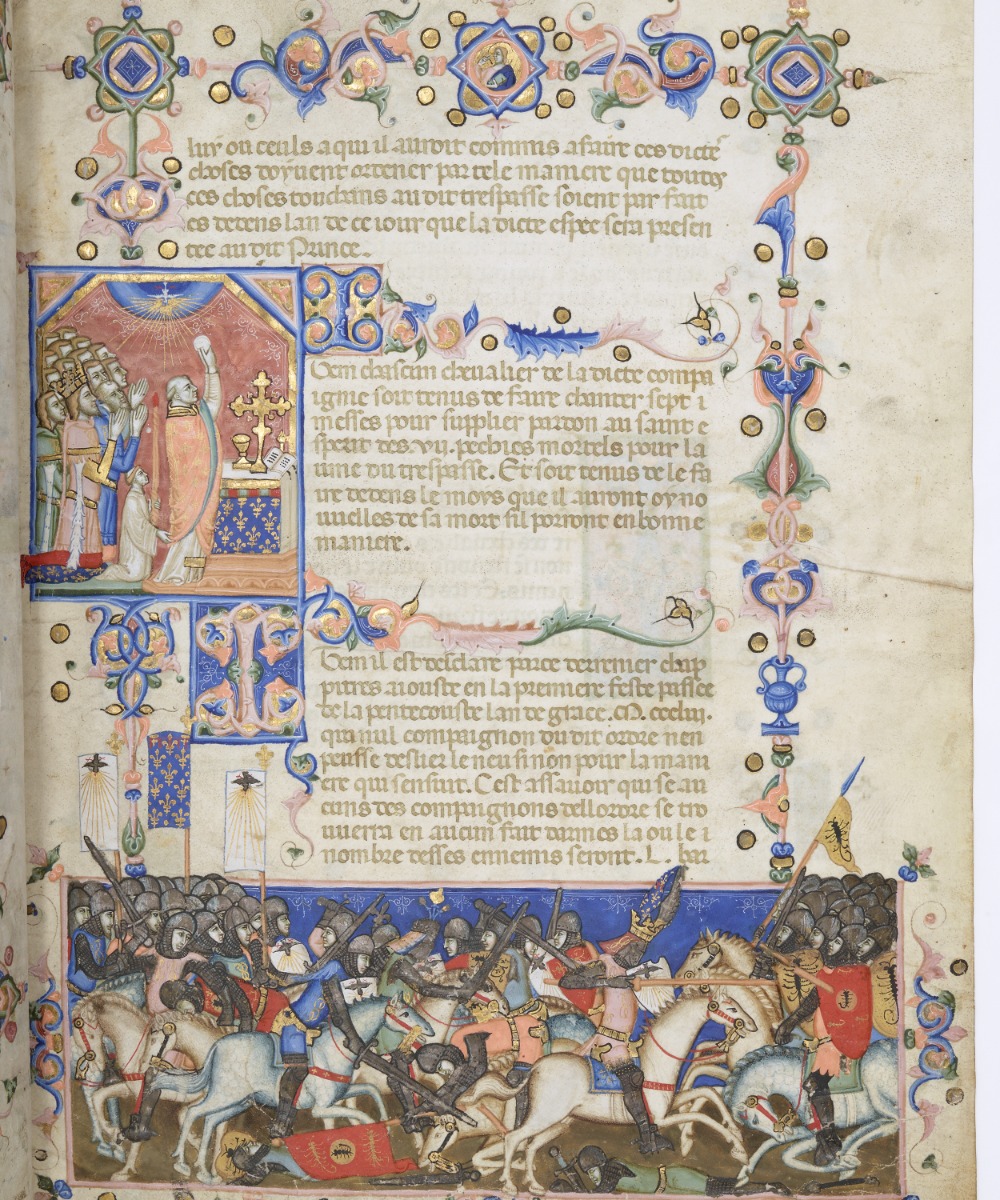 luy ou ceuls a qui il auroit commis a faire ces dicte
choses doyuent ordener par tele maniere que toutes
ces choses touchans au dit trespasse soient par fait
es dedens lan de ce iour que la dicte espee sera presen
tee au dit Prince.
Item chascun cheualier de la dicte compa
ignie soit tenus de faire chanter sept i
messes pour supplier pardon au saint e
sperit des .vii. pechies mortels pour la
ime du trespasse. Et soit tenus de le fa
ire dedens le moys que il auront oy no
uuelles de sa mort sil porront en bonne
maniere.
Item il est desclare par ce derrenier chap
pitres aiouste en la premiere feste passee
de la pentecouste lan de grace .M. ccclii.
que nul compaignon du dit ordre nen
puisse deslier le neu si non pour la mani
ere qui sensuit. Cest assauoir qui se au
cuns des compaignons dellordre se tro
uuerra en aucun fait darmes la ou le i
nombre desses ennemis seront .L. bar